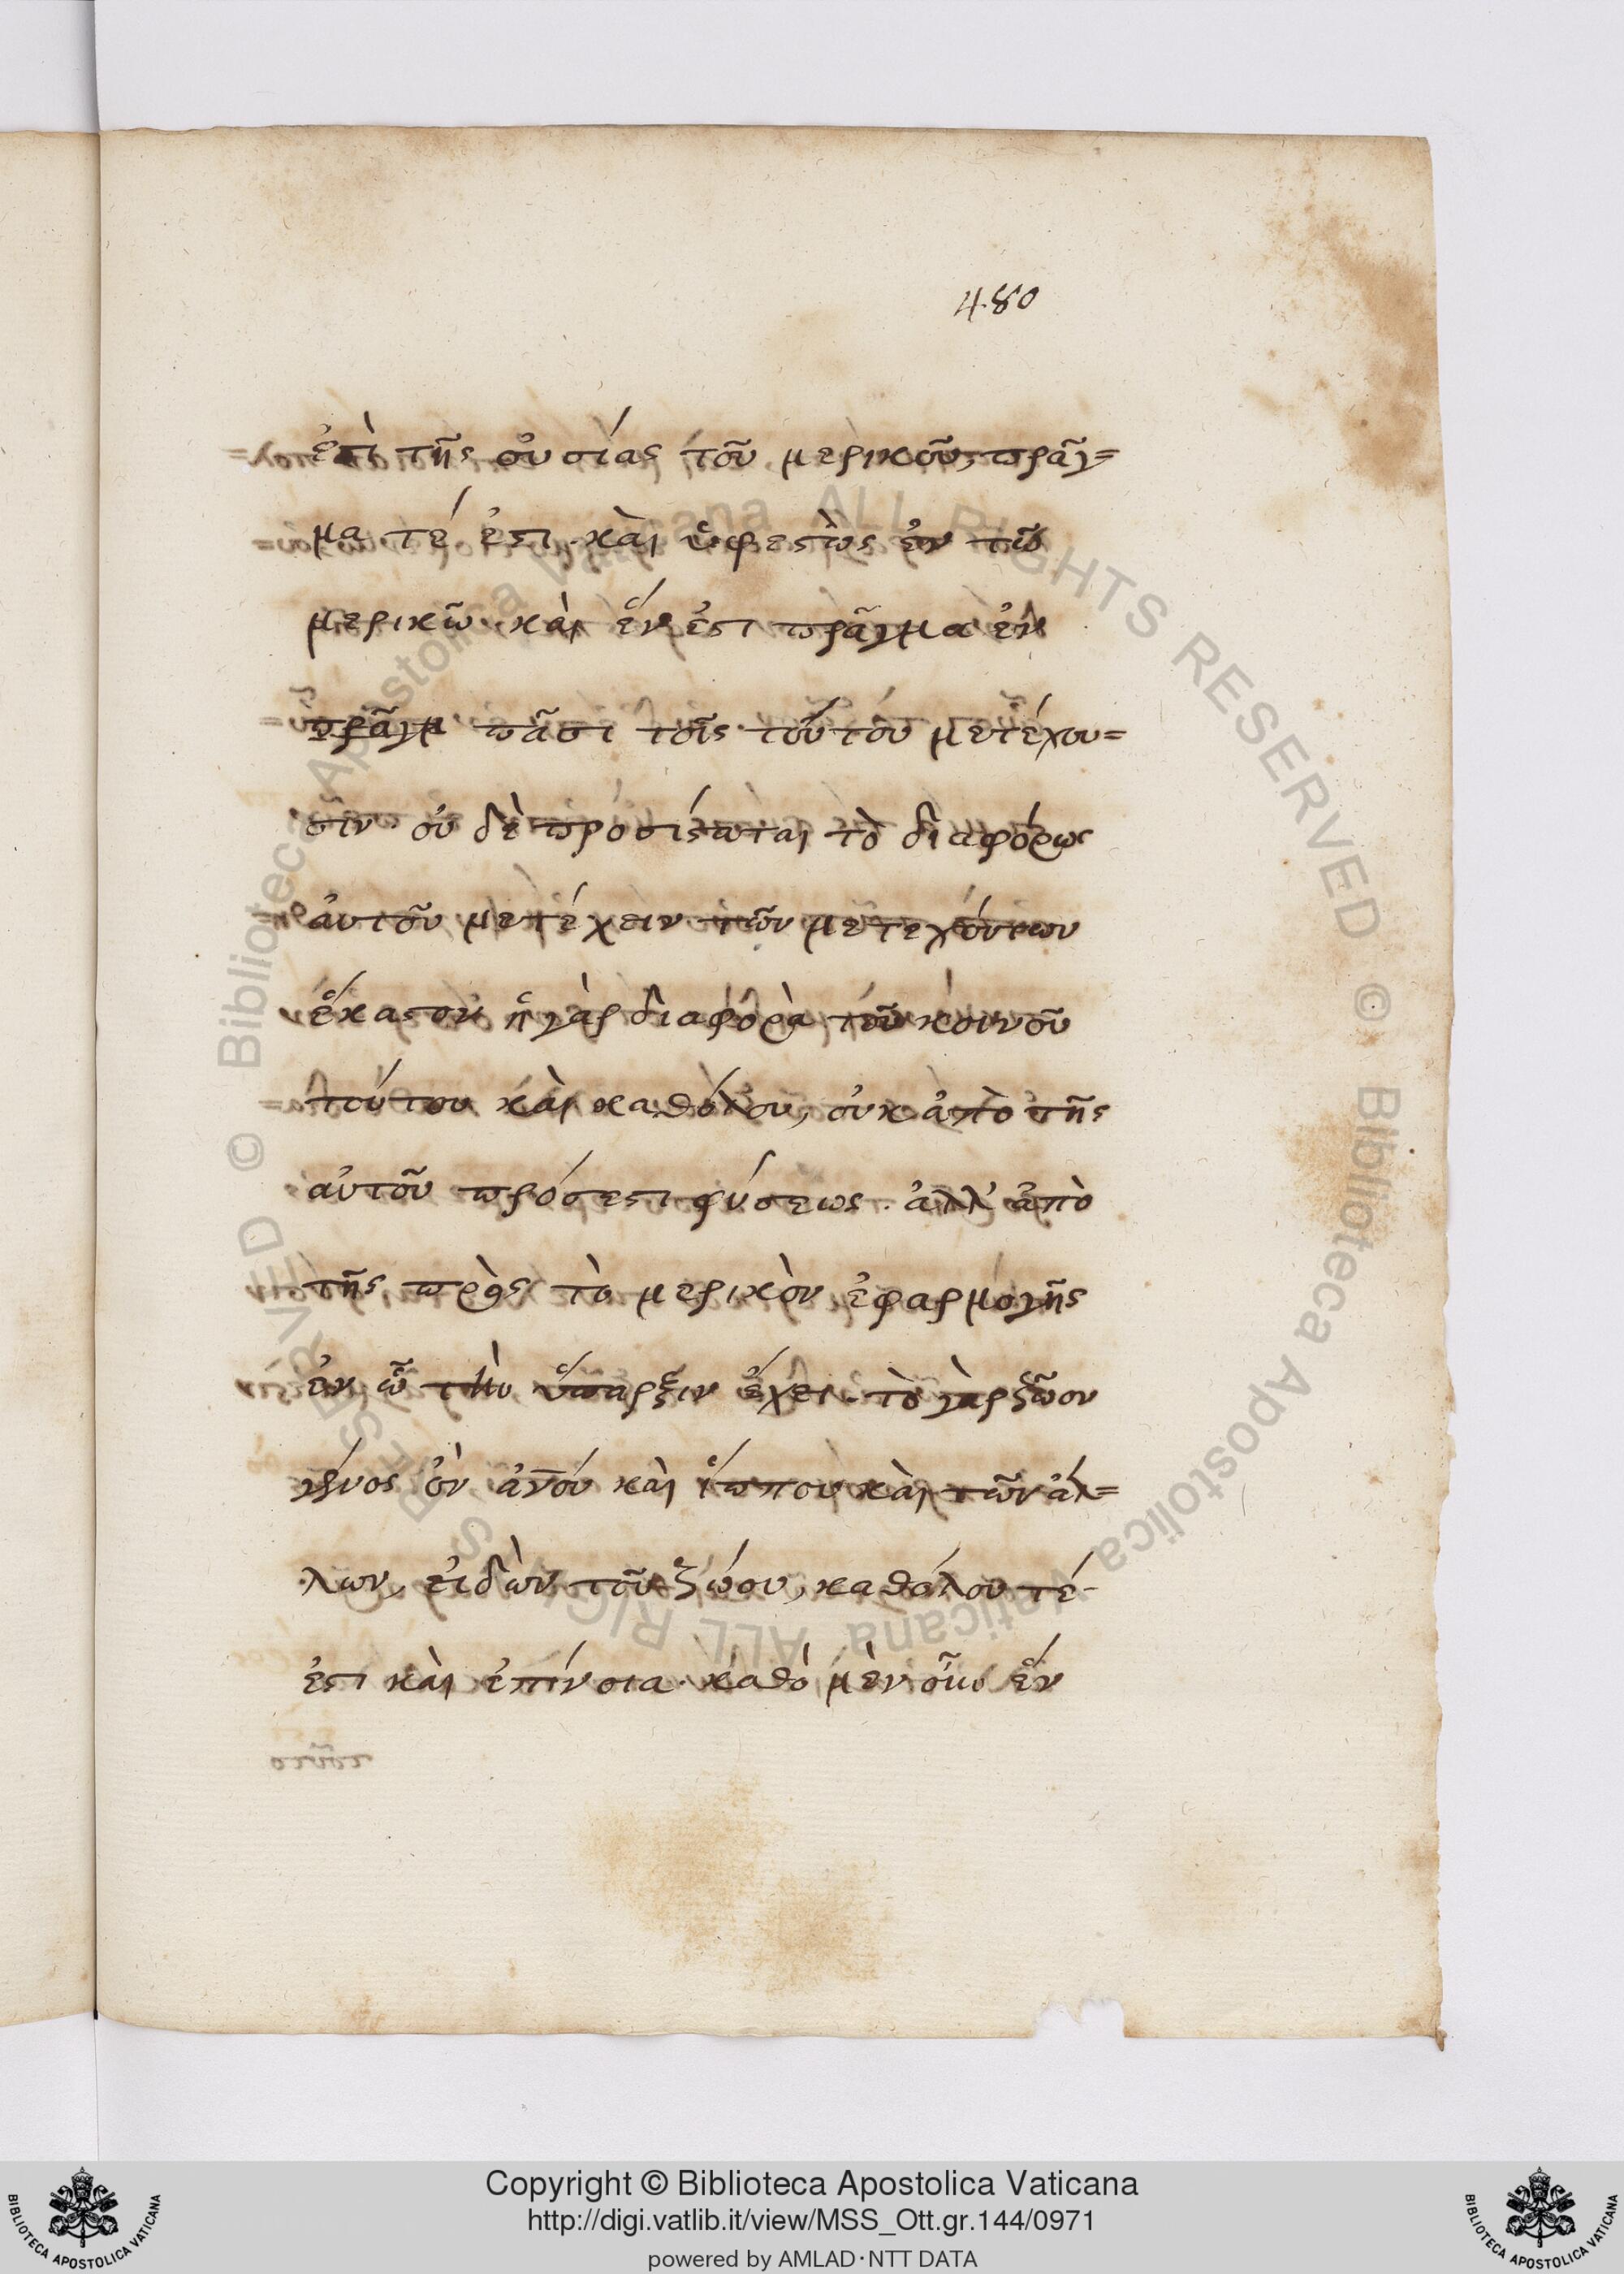 480
ἐπὶ τῆς οὐσίας τοῦ μερικοῦ, πρᾶγ=
μα τέ ἐστι καὶ ὑφεστὼς ἐν τῶ
μερικῶ· καὶ ἕν ἐστι πρᾶγμα ἐν
πρᾶγμ πᾶσι τοῖς τούτου μετέχου=
σιν· οὐδὲ προσίσταται τὸ διαφόρως
αὐτοῦ μετέχειν τῶν μετεχόντων
ἕκαστον ἡ γὰρ διαφορὰ τοῦ κοινοῦ
τούτου καὶ καθόλου, οὐκ ἀπὸ τῆς
αὐτοῦ πρόσεστι φύσεως· ἀλλ' ἀπὸ
τῆς πρὸς τὸ μερικὸν ἐφαρμογῆς
ἐν ᾧ τὴν ὕπαρξιν ἔχει· τὸ γὰρ ζῶον
γένος ὂν ἀνού καὶ ἵππου καὶ τῶν ἀλ=
λων, εἰδῶν τοῦ ζώου, καθόλου τέ
ἐστι καὶ ἐπίνοια· καθὸ μὲν οὖν ἓν
Copyright © Biblioteca Apostolica Vaticana
http://digi.vatlib.it/view/MSS_Ott.gr.144/0971
powered by AMLAD·NTT DATA
BIBLIOTECA APOSTOLICA VATICANA
BIBLIOTECA APOSTOLICA VATICANA
© Biblioteca Apostolica Vaticana ALL RIGHTS RESERVED © Biblioteca Apostolica Vaticana ALL RIGHTS RESERVED